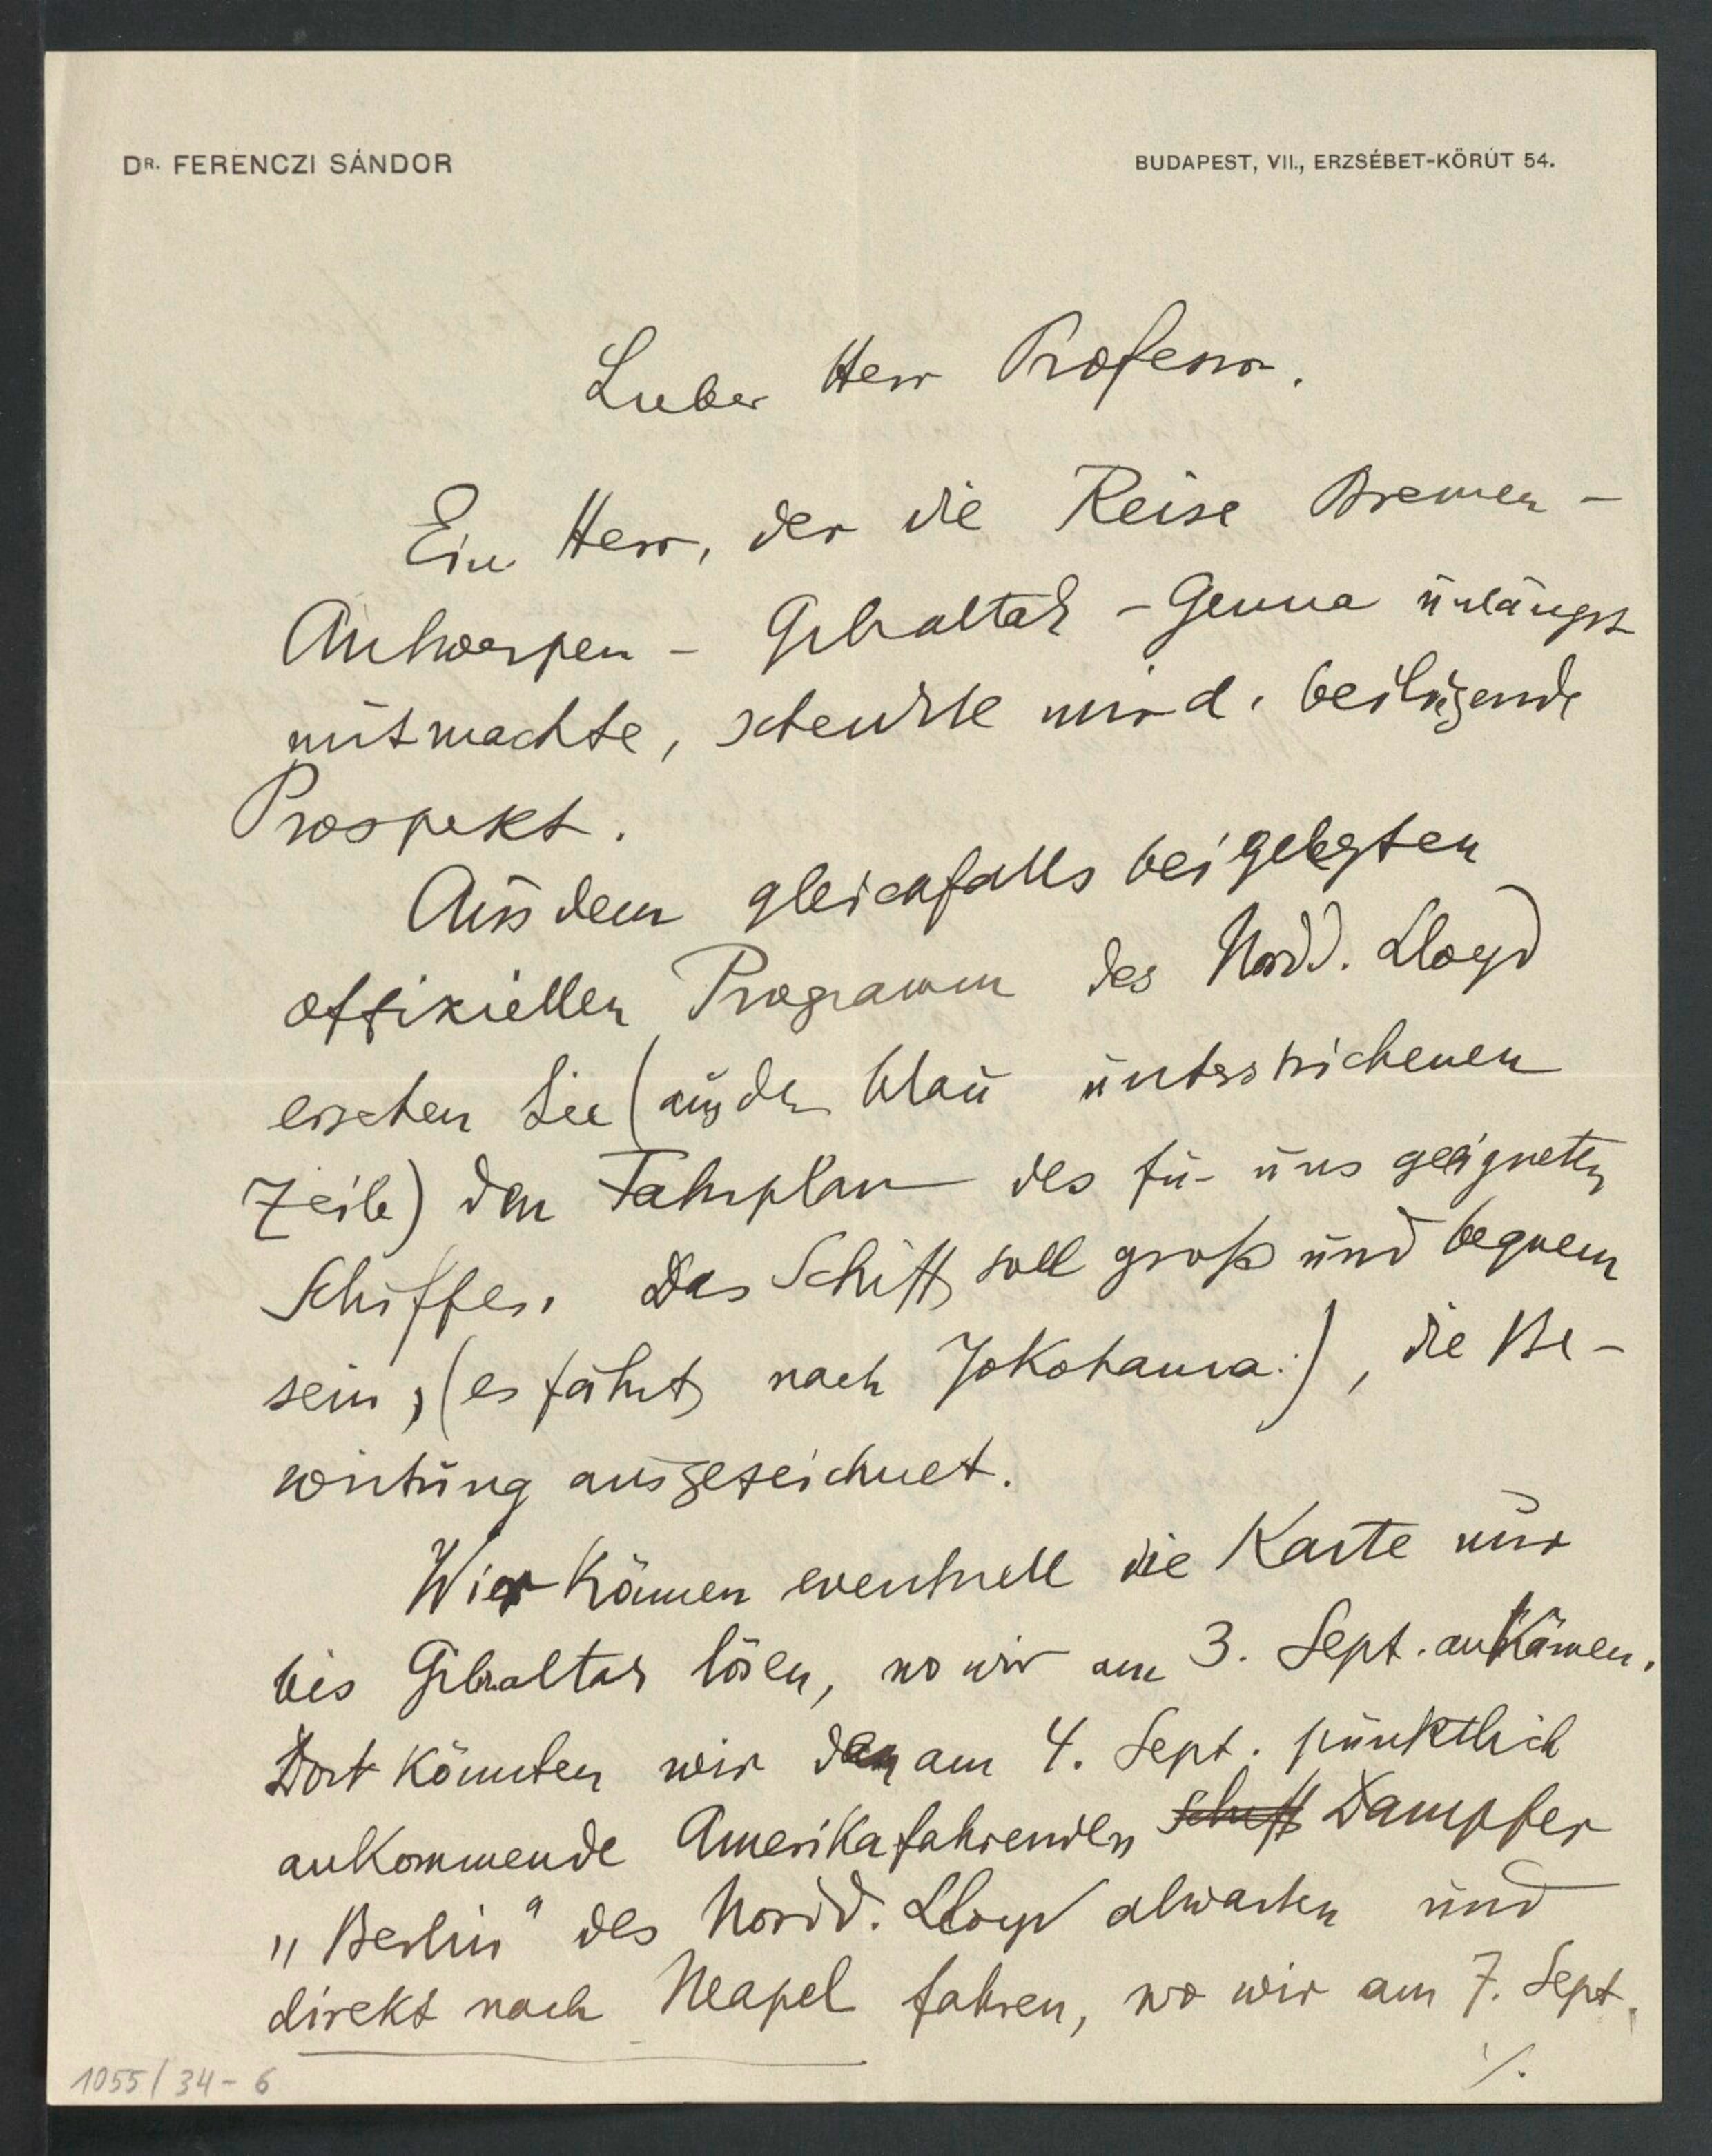 DR. FERENCZI SÁNDOR
BUDAPEST, VII., ERZSÉBET-KÖRÚT 54.
Lieber Herr Professor.
Ein Herr, der die Reise Bremen –
Antwerpen – Gibraltar – Genua unlängst
mitmachte, schenkte mir d. beiliegende
Prospekt.
Aus dem gleichfalls beigelegten
offiziellen Programm des Nordd. Lloyd
ersehen Sie (aus der blau unterstrichenen
Zeile) den Fahrplan des für uns geeigneten
Schiffes. Das Schiff soll groß und bequem
sein, (es fährt nach Jokohama!), die Be-
wirtung ausgezeichnet.
Wir kämen eventuell die Karte nur
bis Gibraltar lösen, wo wir am 3. Sept. ankämen.
Dort könnten wir den am 4. Sept. pünktlich
ankommende Amerikafahrenden Schiff Dampfer
„Berlin“ des Nordd. Lloyd abwarten und
direkt nach Neapel fahren, wo wir am 7. Sept.
./.
1055/34-6